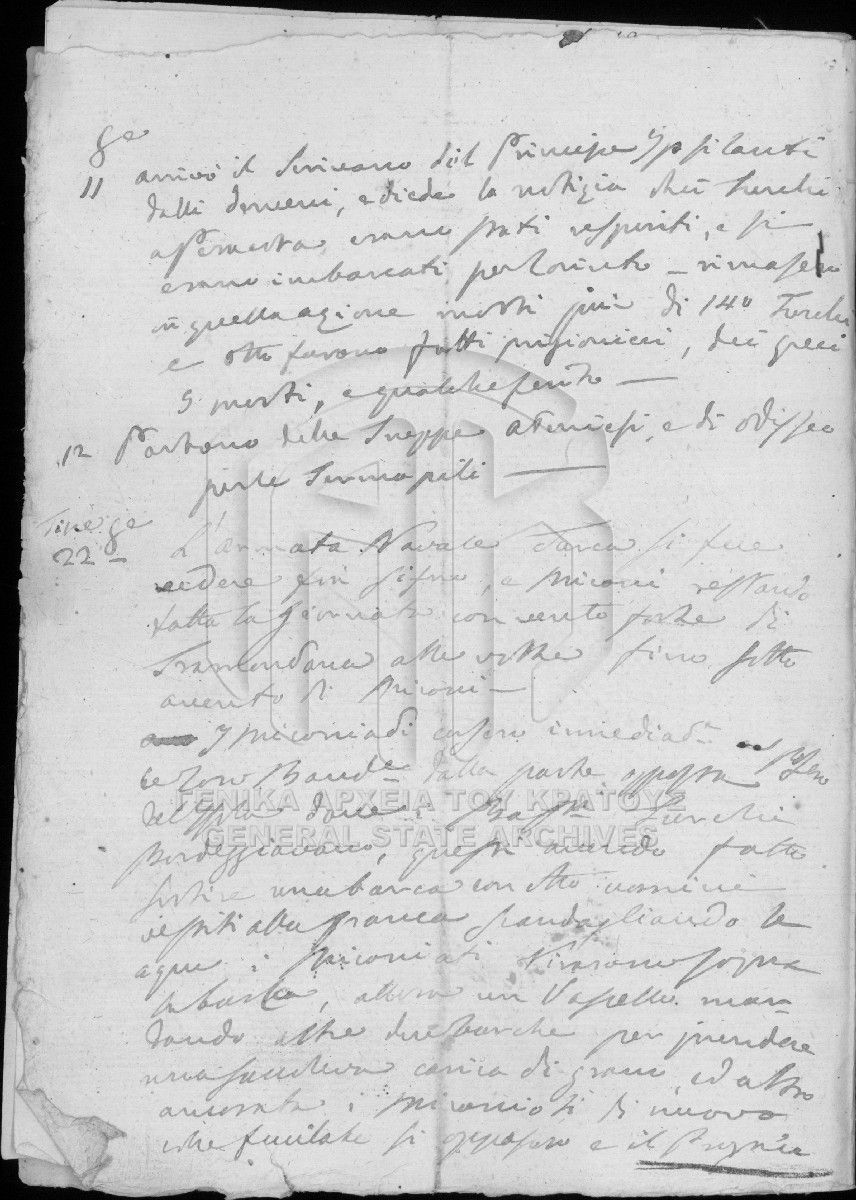 8e
11 arrivò il Scrivano del Principe Ypsilanti
dalli doveri, e diede la notizia che i Turchi
a Petracca erano stati respinti, e si
erano imbarcati per Corinto _ rimasero
in quella azione morti più di 140 Turchi
e otto furono fatti prigionieri, dei greci
5 morti, e qualche ferito —
12 Partono delle Truppe ateniesi, e di Odisseo
per le Termopili —
Tine 8e
22 — L'armata Navale Turca si fece
vedere fra Tine, e Miconi restando
tutta la giornata con vento forte di
Tramontana alle volte fino sotto
avento di Miconi —
I Miconiadi
le loro Band dalla parte opposta
del Isola dove i Turchi
bordeggiavano, questi avendo fatto
sortire una barca con otto uomini
vestiti alla franca scandagliando le
aque i Miconiati tirarono sopra
la barca, allora un Vascello man-
dando altre due barche per prendere
una carica di grano, ed altro
ancorata i Miconioti di nuovo
colle fucilate si opposero e il
ΓΕΝΙΚΑ ΑΡΧΕΙΑ ΤΟΥ ΚΡΑΤΟΥΣ
GENERAL STATE ARCHIVES